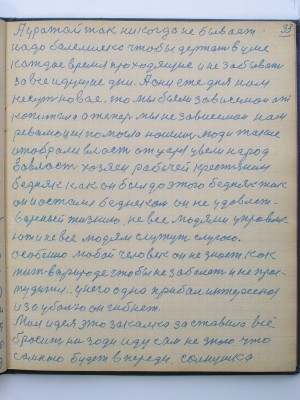 33
Дуратой так никогда не бывает
надо чтобы держат в уме
каждое время проходящие и не забыват
за все идущие дни. А они же дня нам
несут новае. то мы были зависемои от
копитала а тепер мы не зависемои нам
револющия помогла нашим люди такие
отобрали власт от царя увели народ
во власт хозяен рабочей крестянин
бедняк как он был до этого бедняк так
он и остался бедняком он не удовлет-
воренай жизнию, не все людями управля
ют и не все людям служут служо.
особино любой человек он не знает как
жит в природе чтобы не заболет и не прос-
тудится. у него одно
из за убояго он гибнет.
Моя идея это закалка заставила всё
бросит на зоди иду сам не знаю что
самною будет впереди. солнушка